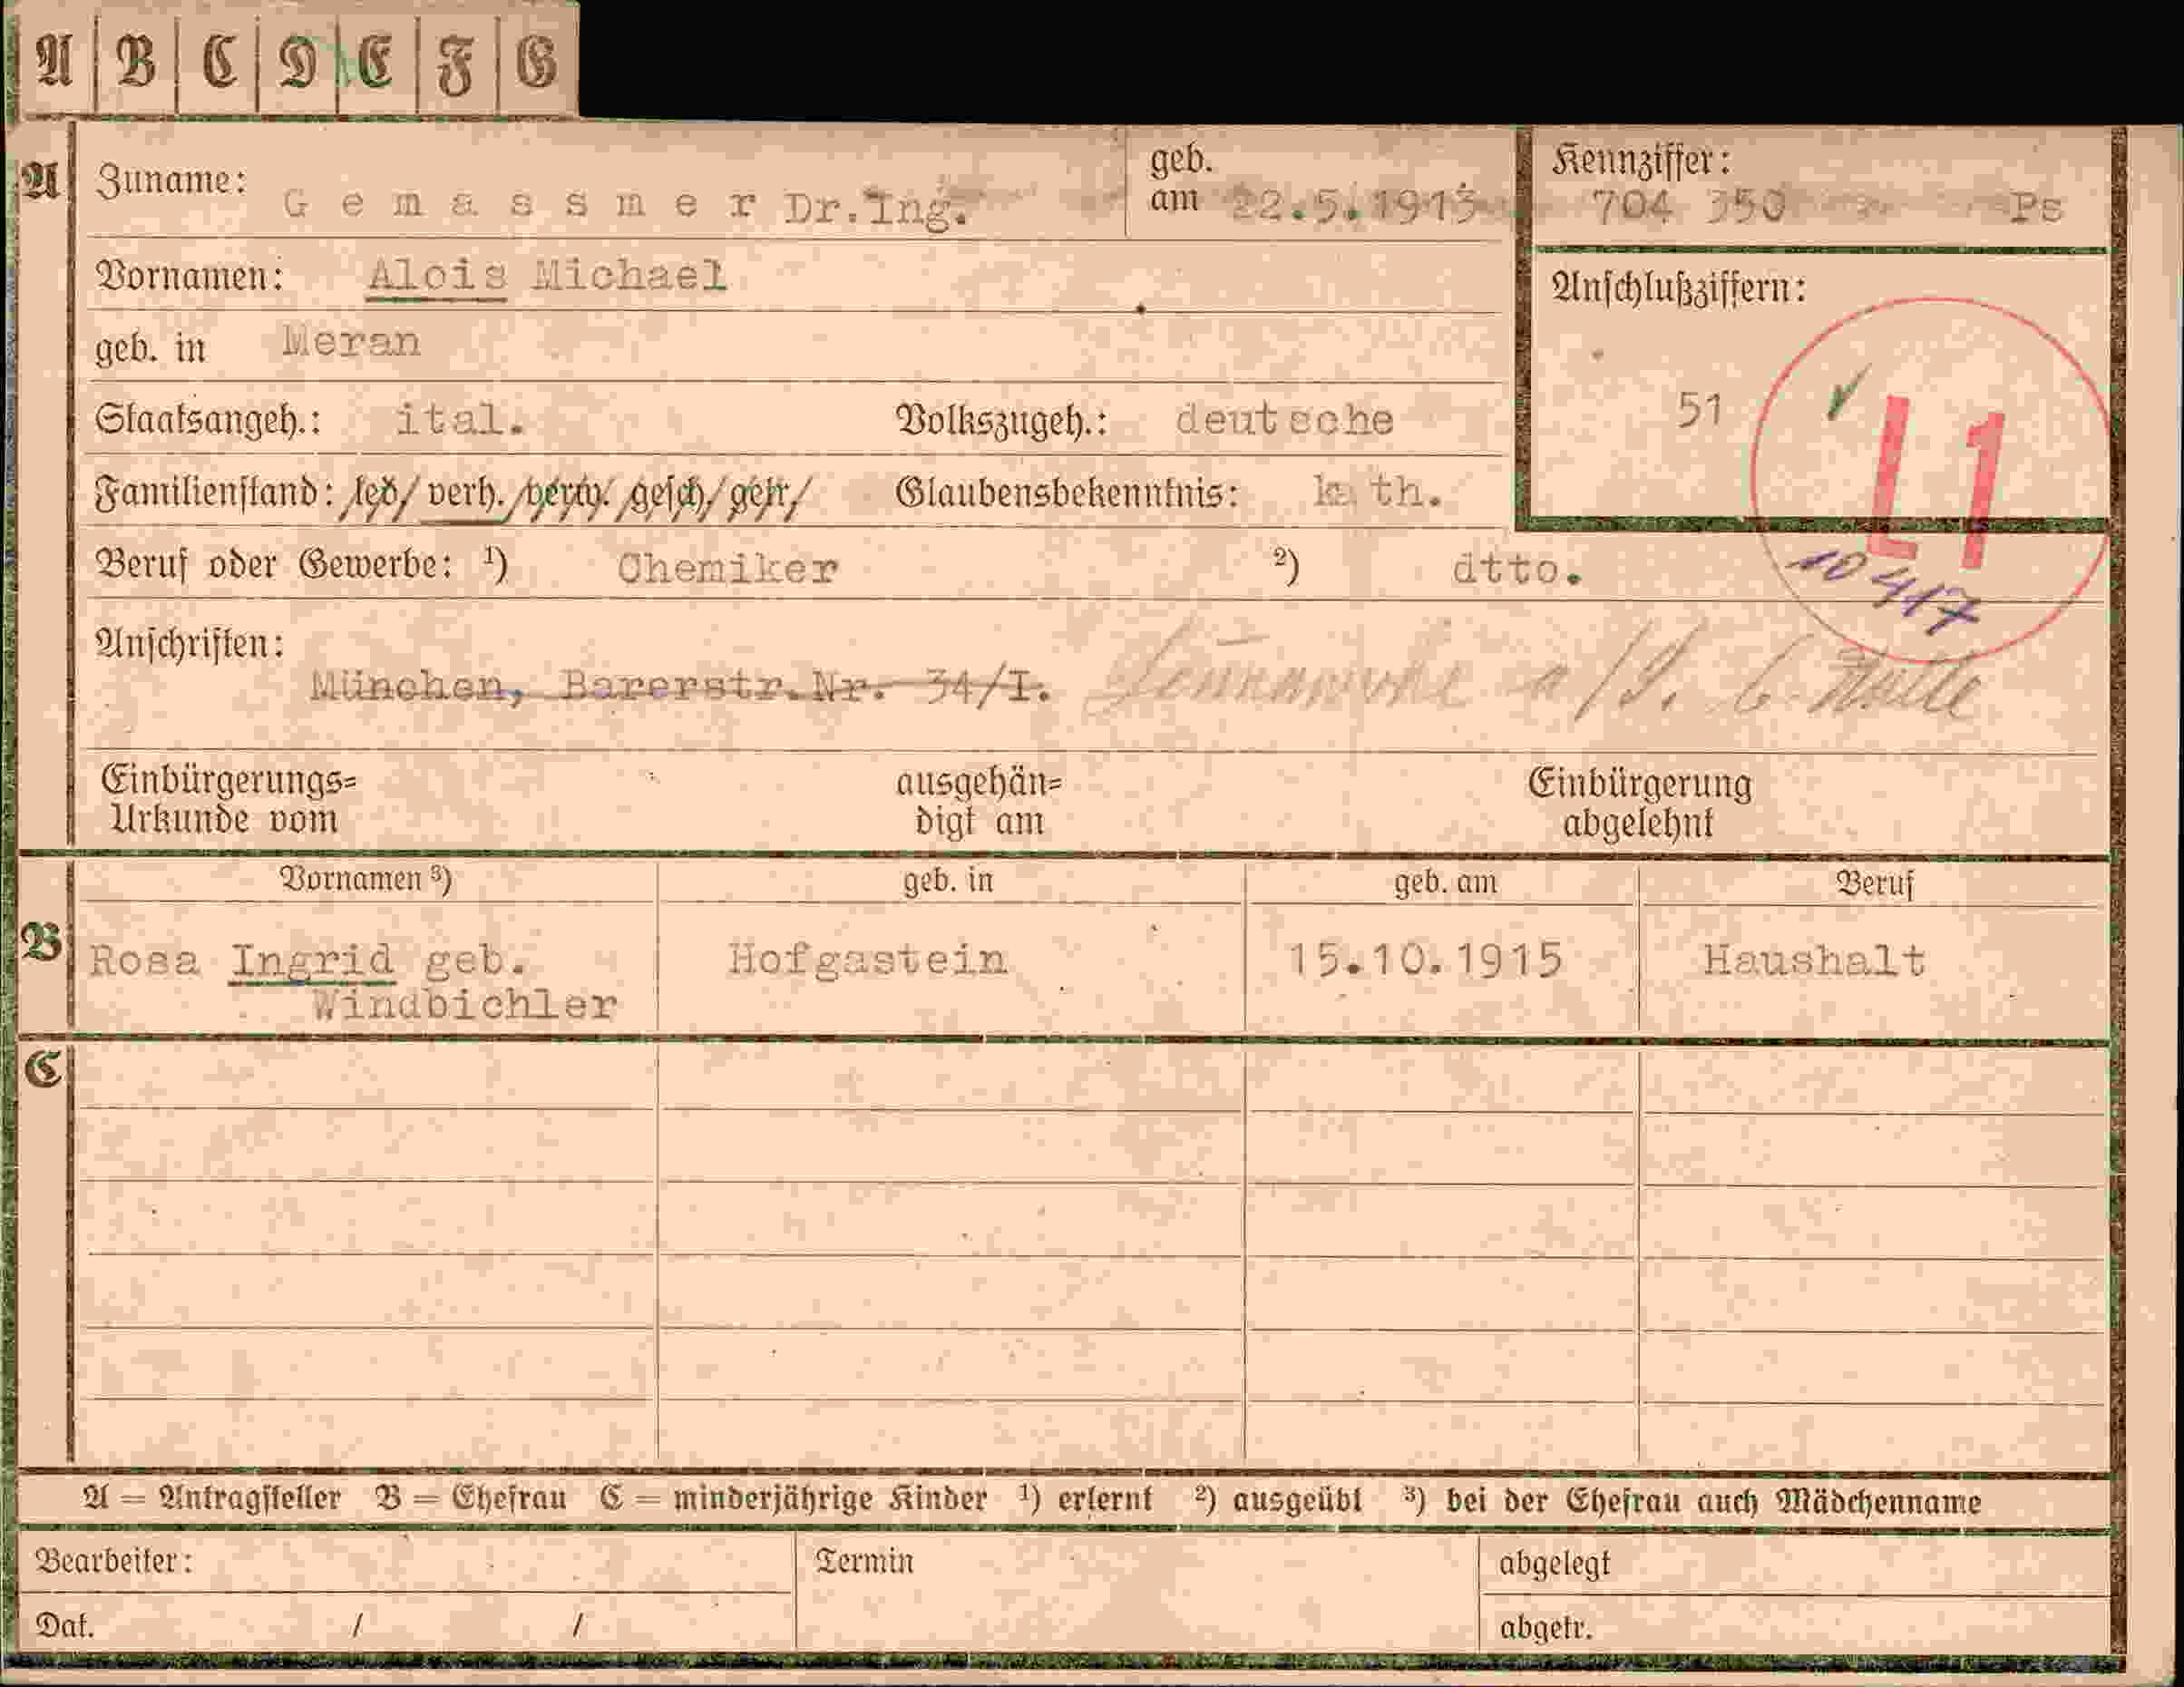 A B C D E F G
A
Zuname: Gemassmer Dr.Ing.
geb. am 22.5.1913
Kennziffer: 704 350 Ps
Vornamen: Alois Michael
Anschlußziffern:
geb. in Meran
51
L1
Staatsangeh.: ital. Volkszugeh.: deutsche
Familienstand: led/ verh. /verw. /gesch/ getr/ Glaubensbekenntnis: kath.
Beruf oder Gewerbe: ¹) Chemiker ²) dtto.
10417
Anschriften:
München, Barerstr.Nr. 34/I. a/S.
Einbürgerungs=
Urkunde vom
ausgehän=
digt am
Einbürgerung
abgelehnt
Vornamen ³) geb. in geb. am Beruf
B
Rosa Ingrid geb. Hofgastein 15.10.1915 Haushalt
Windbichler
C
A = Antragsteller B = Ehefrau C = minderjährige Kinder ¹) erlernt ²) ausgeübt ³) bei der Ehefrau auch Mädchenname
Bearbeiter: Termin abgelegt
Dat. / / abgetr.